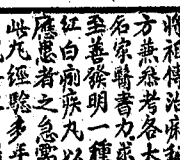 將祖傳治麻
方兼叅考各大
名家醫書力求
至善發明一種
紅白痢疾丸以
應患者之急需
此丸經驗多年